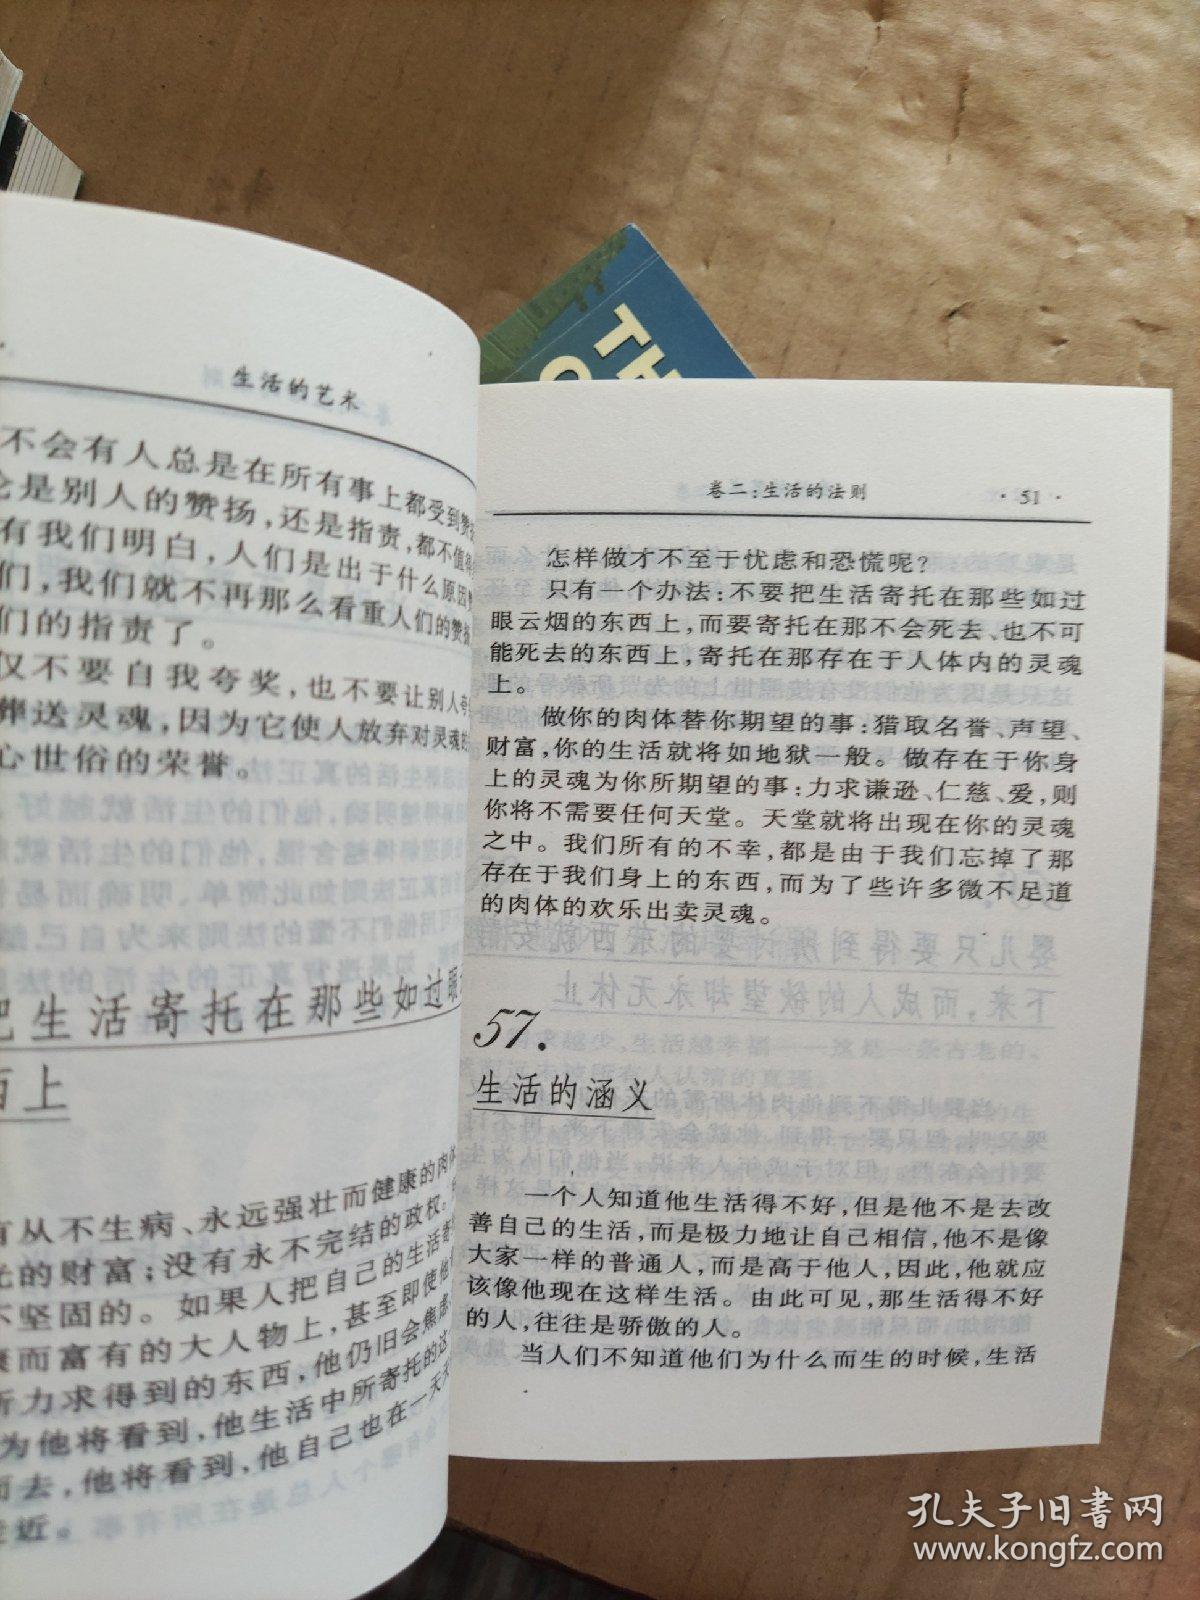 生活的艺术
不会有人总是在所有事上都受到赞
是别人的赞扬,还是指责,都不值得
有我们明白,人们是出于什么原因
们,我们就不再那么看重人们的赞扬
们的指责了。
仅不要自我夸奖,也不要让别人夸
葬送灵魂,因为它使人放弃对灵魂的
心世俗的荣誉。
把生活寄托在那些如过眼
西上
有从不生病、永远强壮而健康的肉体
的财富;没有永不完结的政权。
不坚固的。如果人把自己的生活寄
康而富有的大人物上,甚至即使他
所力求得到的东西,他仍旧会焦虑
为他将看到,他生活中所寄托的这
而去,他将看到,他自己也在一天天
近。
卷二:生活的法则
·51·
怎样做才不至于忧虑和恐慌呢?
只有一个办法:不要把生活寄托在那些如过
眼云烟的东西上,而要寄托在那不会死去、也不可
能死去的东西上,寄托在那存在于人体内的灵魂
上。
做你的肉体替你期望的事:猎取名誉、声望、
财富,你的生活就将如地狱一般。做存在于你身
上的灵魂为你所期望的事:力求谦逊、仁慈、爱,则
你将不需要任何天堂。天堂就将出现在你的灵魂
之中。我们所有的不幸,都是由于我们忘掉了那
存在于我们身上的东西,而为了些许多微不足道
的肉体的欢乐出卖灵魂。
57.
生活的涵义
一个人知道他生活得不好,但是他不是去改
善自己的生活,而是极力地让自己相信,他不是像
大家一样的普通人,而是高于他人,因此,他就应
该像他现在这样生活。由此可见,那生活得不好
的人,往往是骄傲的人。
当人们不知道他们为什么而生的时候,生活
TH
孔夫子旧书网
www.kongfz.com